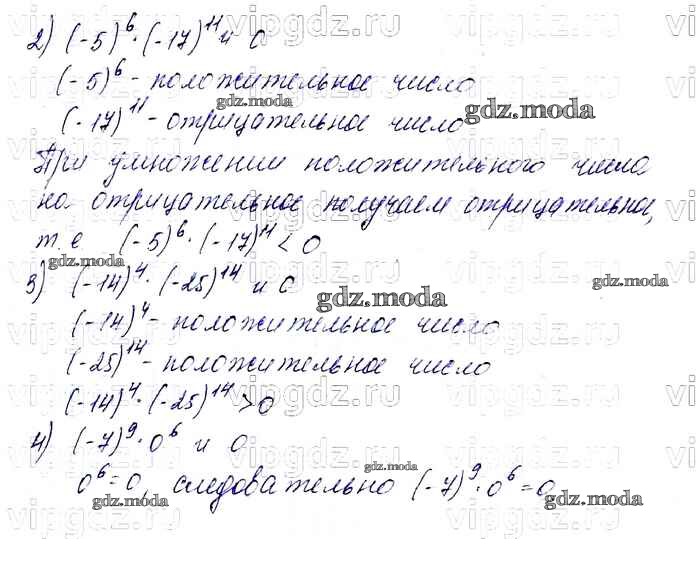 2) (-5)⁶·(-17)¹¹ и 0
(-5)⁶ - положительное число
(-17)¹¹ - отрицательное число
При умножении положительного числа
на отрицательное получаем отрицательное,
т.е (-5)⁶·(-17)¹¹ < 0
3) (-14)⁴·(-25)¹⁴ и 0
(-14)⁴ - положительное число
(-25)¹⁴ - положительное число
(-14)⁴·(-25)¹⁴ > 0
4) (-7)⁹·0⁶ и 0
0⁶=0, следовательно (-7)⁹·0⁶=0
gdz.moda
gdz.moda
gdz.moda
gdz.moda
gdz.moda
gdz.moda
gdz.moda
gdz.moda
vipgdz.ru